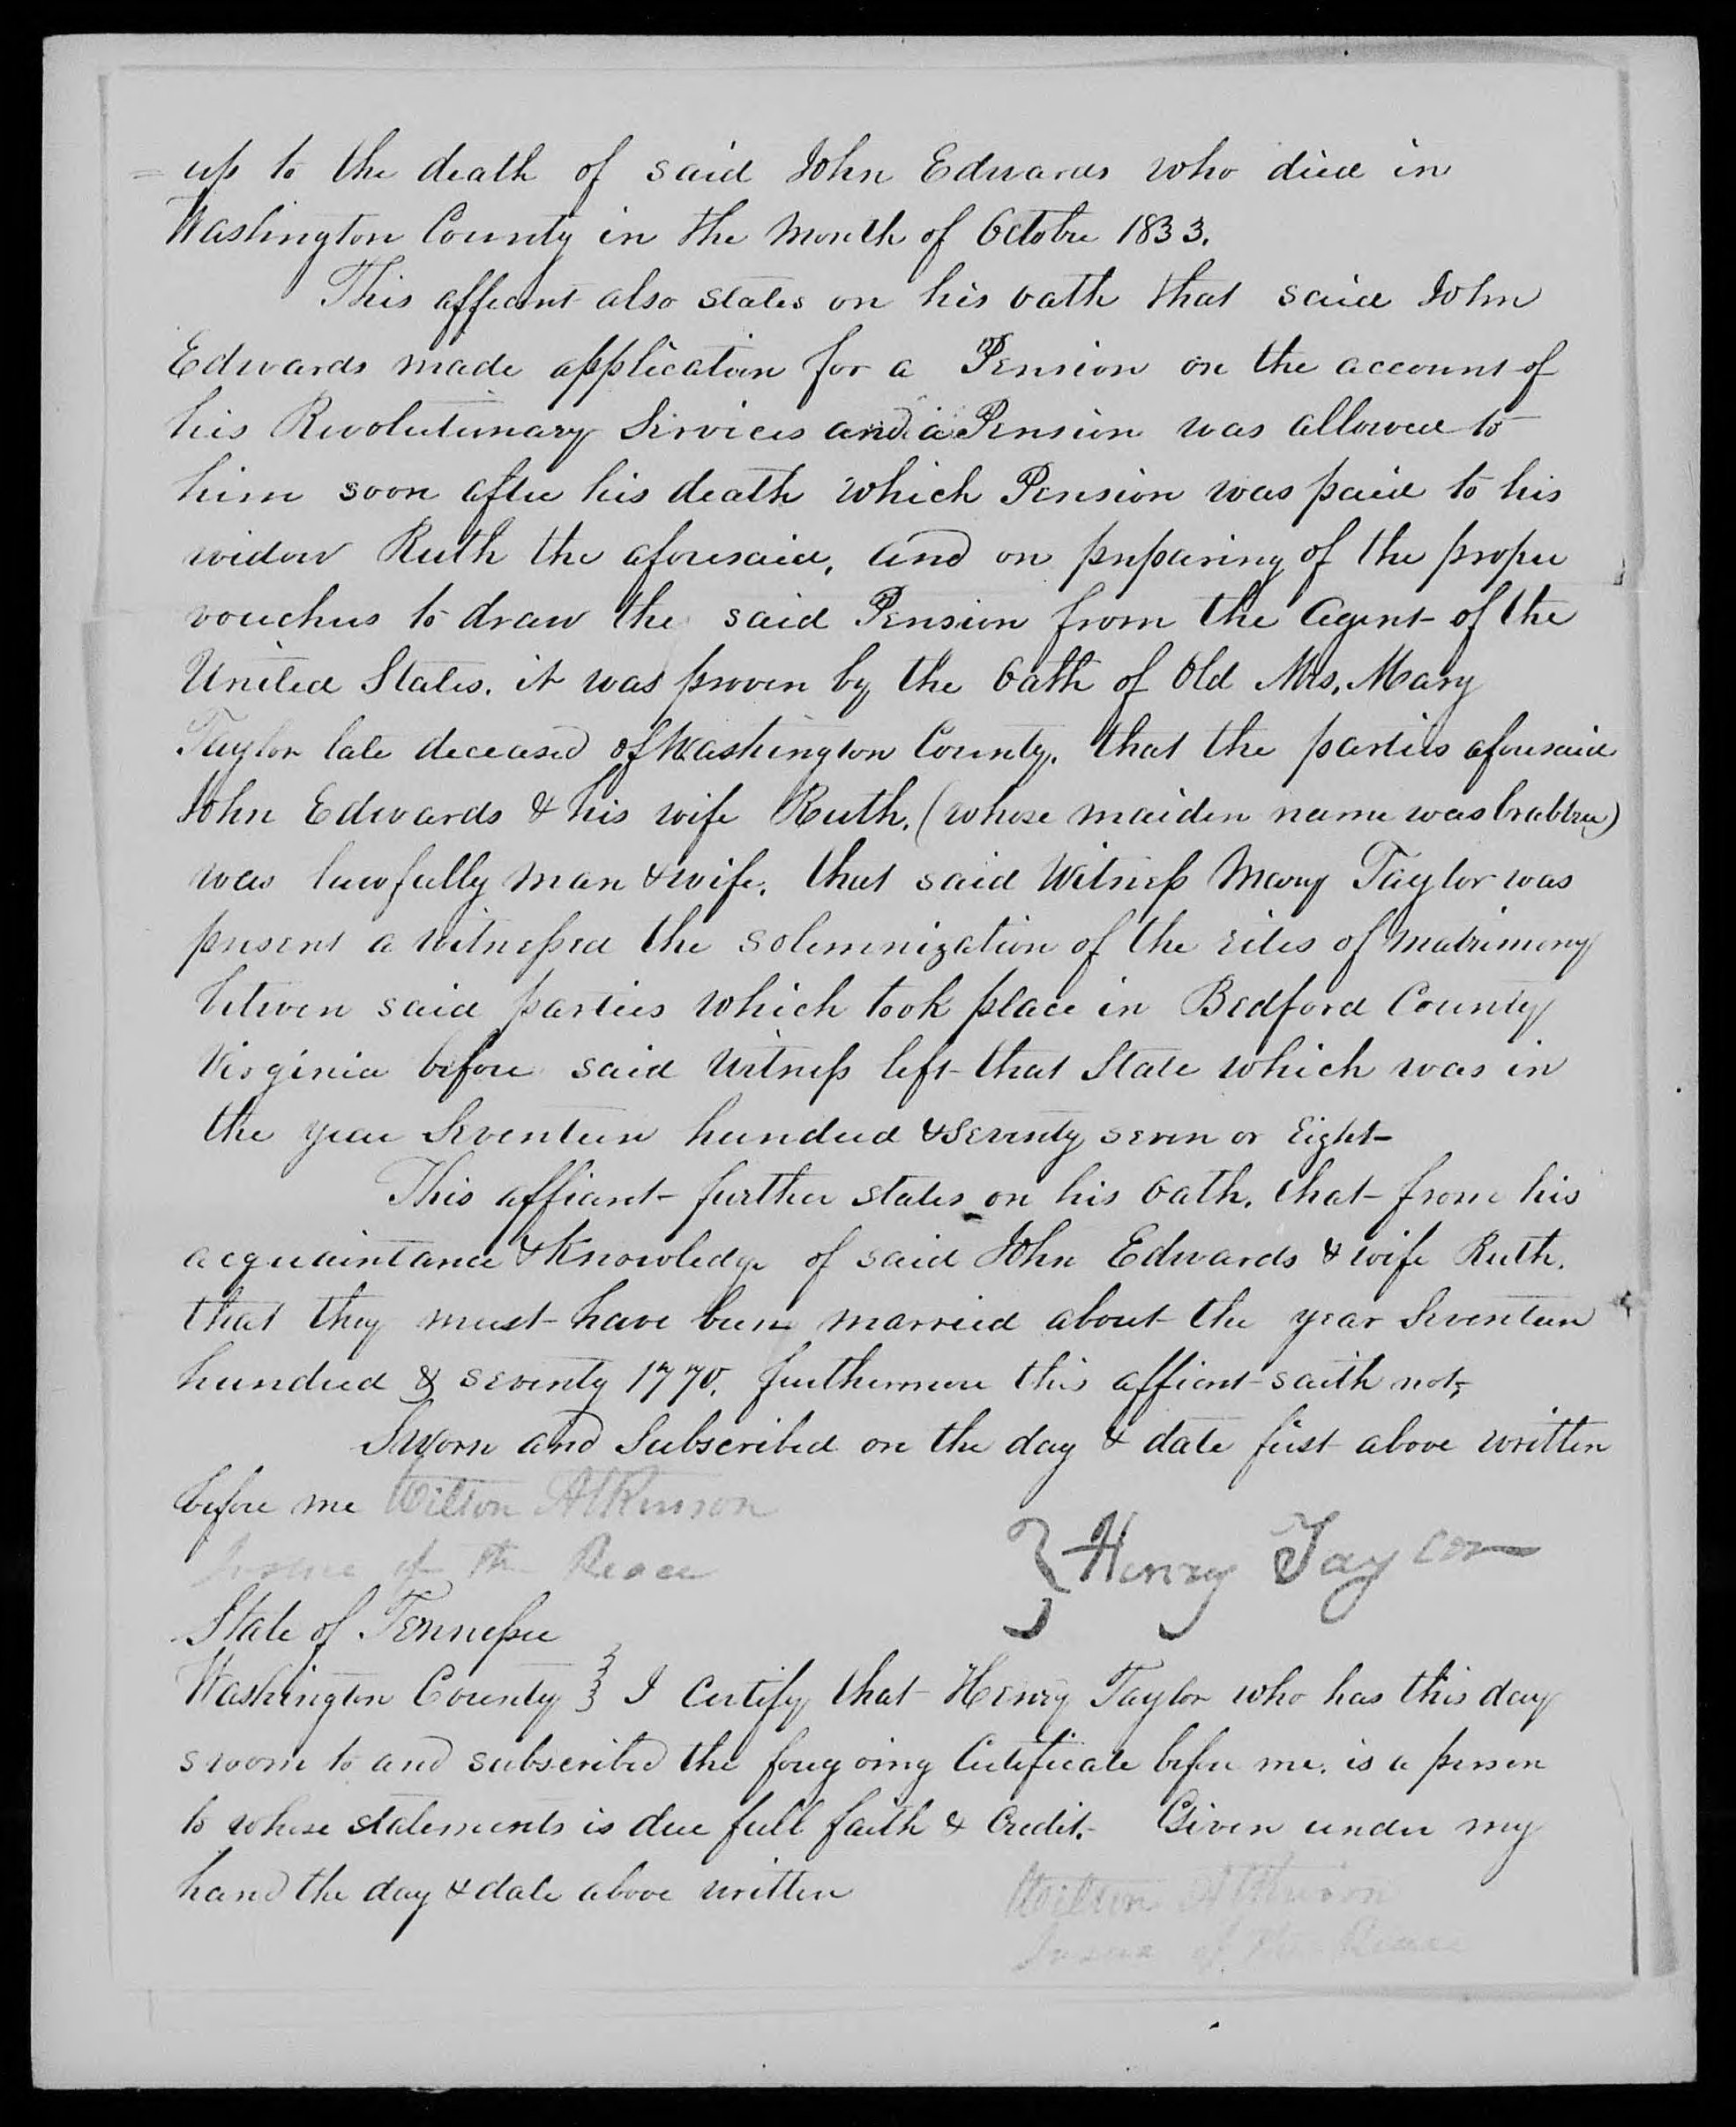 = up to the death of said John Edwards who died in
Washington County in the Month of October 1833.
This affiant also states on his oath that said John
Edwards made application for a Pension on the account of
his Revolutionary Services and a Pension was allowed to
him soon after his death which Pension was paid to his
widow Ruth the aforesaid, and on preparing of the proper
vouchers to draw the said Pension from the Agent of the
United States. it was proven by the Oath of Old Mrs. Mary
Taylor late deceased of Washington County. that the parties aforesaid
John Edwards & his wife Ruth. (whose maiden name was Crabtree)
was lawfully man & wife. that said Witness Mary Taylor was
present a witnessed the solemnization of the rites of Matrimony
between said parties which took place in Bedford County
Virginia before said Witness left that State which was in
the year Seventeen hundred & Seventy seven or Eight
This affiant further states on his Oath. that from his
acquaintance & Knowledge of said John Edwards & wife Ruth.
that they must have been married about the year Seventeen
hundred & seventy 1770. furthermore this affiant saith not,
Sworn and Subscribed on the day & date first above written
before me Wilton Atkinson
Justice of the Peace
} Henry Taylor
State of Tennessee
Washington County } I Certify that Henry Taylor who has this day
sworn to and subscribed the foregoing Certificate before me. is a person
to whose statements is due full faith & Credit. Given under my
hand the day & date above written
Wilton Atkinson
Justice of the Peace